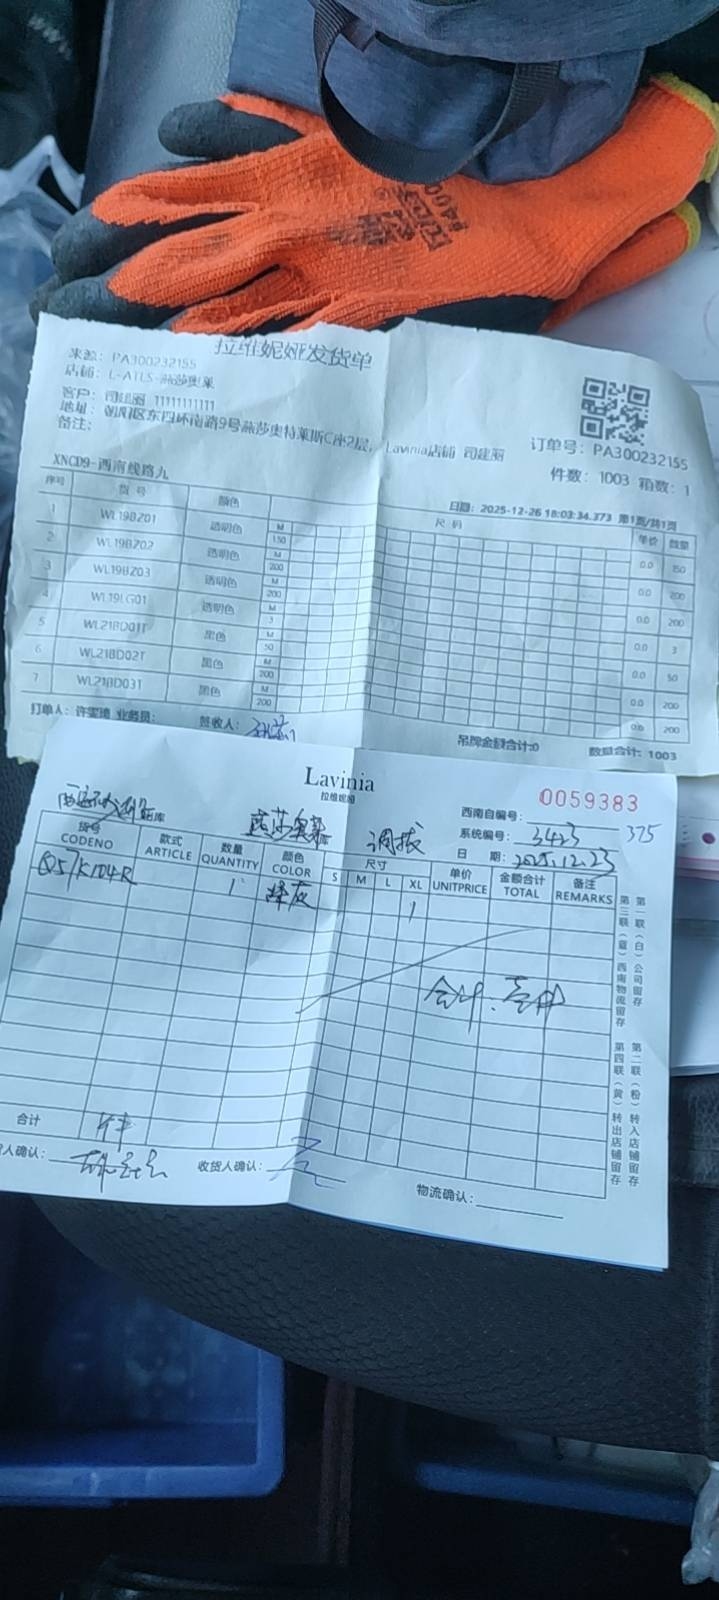 拉维妮娅发货单
来源：PA300232155
店铺：L-ATLS-燕莎奥莱
客户：司建丽 11111111111
地址：朝阳区东四环南路9号燕莎奥特莱斯C座2层，Lavinia店铺 司建丽
备注：
订单号：PA300232155
件数：1003 箱数：1
XNCD9-西南线路九
日期：2025-12-26 18:03:34.373 第1页/共1页
序号 货号 颜色 尺码 单价 数量
1 WL19BZ01 透明色 M 150 0.0 150
2 WL19BZ02 透明色 M 200 0.0 200
3 WL19BZ03 透明色 M 200 0.0 200
4 WL19LG01 透明色 M 3 0.0 3
5 WL21BD01T 黑色 M 50 0.0 50
6 WL21BD02T 黑色 M 200 0.0 200
7 WL21BD03T 黑色 M 200 0.0 200
打单人：许雯琦 业务员： 签收人：
吊牌金额合计:0 数量合计：1003
Lavinia
拉维妮娅
0059383
西南自编号：
库 燕莎奥莱 库 调拨
系统编号：3423 375
日 期：2025.12.23
货号 CODENO 款式 ARTICLE 数量 QUANTITY 颜色 COLOR 尺寸 S M L XL 单价 UNITPRICE 金额合计 TOTAL 备注 REMARKS
Q57K104R 1 灰 1
合计：壹件
合计 件
人确认： 收货人确认： 物流确认：
第一联（白）公司留存
第二联（粉）转入店铺留存
第三联（蓝）西南物流留存
第四联（黄）转出店铺留存